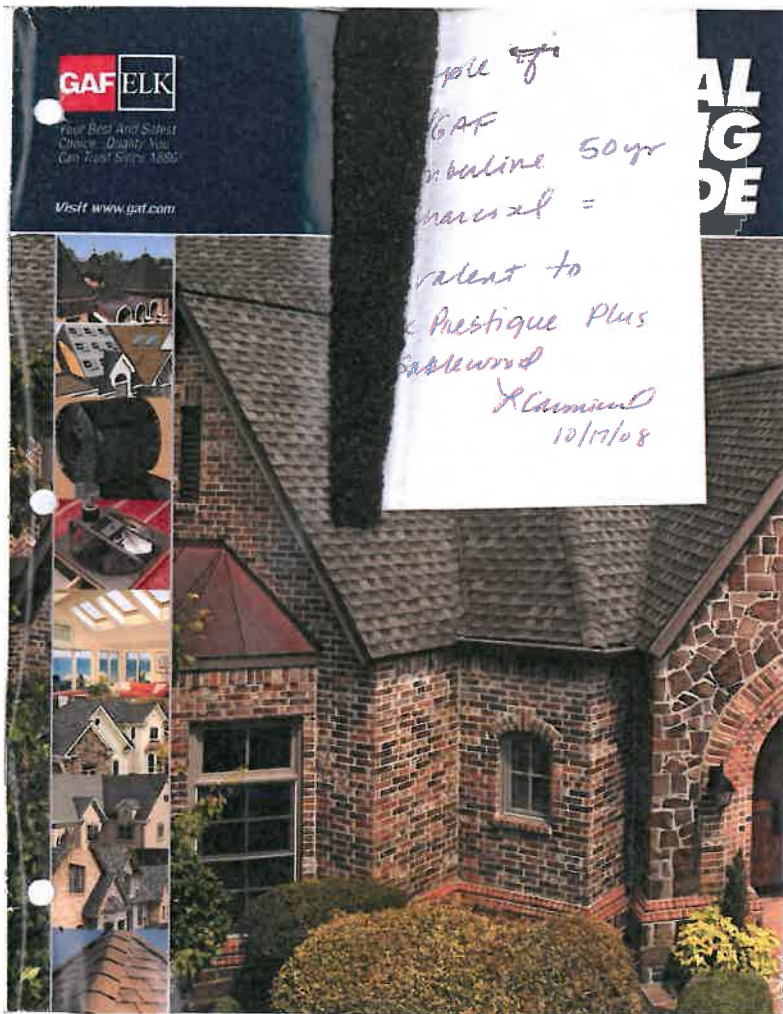 GAF ELK
Your Best And Safest
Choice. Quality You
Can Trust Since 1886
Visit www.gaf.com
AL
NG
DE
ple of
GAF
mberline 50yr
harcoal =
valent to
Prestique Plus
Sablewood
10/17/08